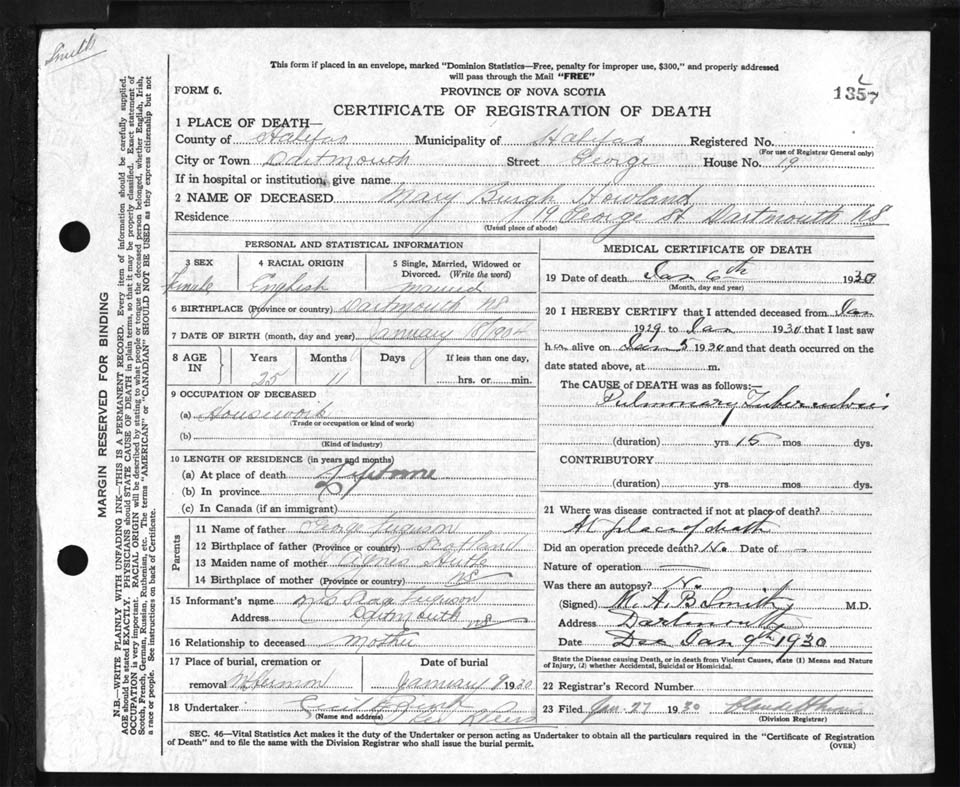 Smith
This form if placed in an envelope, marked "Dominion Statistics—Free, penalty for improper use, $300," and properly addressed
will pass through the Mail "FREE"
FORM 6.
PROVINCE OF NOVA SCOTIA
1357
CERTIFICATE OF REGISTRATION OF DEATH
1 PLACE OF DEATH—
County of Halifax Municipality of Halifax Registered No.
(For use of Registrar General only)
City or Town Dartmouth Street George House No. 19
If in hospital or institution, give name
2 NAME OF DECEASED Mary Burgh Howland
Residence 19 George St Dartmouth NS
(Usual place of abode)
PERSONAL AND STATISTICAL INFORMATION
3 SEX 4 RACIAL ORIGIN 5 Single, Married, Widowed or
Divorced. (Write the word)
Female English Married
6 BIRTHPLACE (Province or country) Dartmouth NS
7 DATE OF BIRTH (month, day and year) January 18/1904
8 AGE IN Years Months Days If less than one day,
25 11 hrs. or min.
9 OCCUPATION OF DECEASED
(a) Housework
(Trade or occupation or kind of work)
(b)
(Kind of industry)
10 LENGTH OF RESIDENCE (in years and months)
(a) At place of death Lifetime
(b) In province
(c) In Canada (if an immigrant)
Parents
11 Name of father George Ferguson
12 Birthplace of father (Province or country) Scotland
13 Maiden name of mother Agnes
14 Birthplace of mother (Province or country) NS
15 Informant's name Mrs Ferguson
Address Dartmouth NS
16 Relationship to deceased Mother
17 Place of burial, cremation or Date of burial
removal Mt Hermon January 9 1930
18 Undertaker
(Name and address)
MEDICAL CERTIFICATE OF DEATH
19 Date of death Jan 6th 1930
(Month, day and year)
20 I HEREBY CERTIFY that I attended deceased from Jan
1929 to Jan 1930 that I last saw
her alive on Jan 5 1930 and that death occurred on the
date stated above, at m.
The CAUSE of DEATH was as follows:—
Pulmonary Tuberculosis
(duration) yrs 15 mos dys.
CONTRIBUTORY
(duration) yrs. mos. dys.
21 Where was disease contracted if not at place of death?
At place of death
Did an operation precede death? No Date of —
Nature of operation —
Was there an autopsy? No
(Signed) M. A. B Smith M.D.
Address Dartmouth
Date Dec Jan 9th 1930
State the Disease causing Death, or in death from Violent Causes, state (1) Means and Nature
of Injury, (2) whether Accidental, Suicidal or Homicidal.
22 Registrar's Record Number
23 Filed Jan 27 1930
(Division Registrar)
SEC. 46—Vital Statistics Act makes it the duty of the Undertaker or person acting as Undertaker to obtain all the particulars required in the "Certificate of Registration
of Death" and to file the same with the Division Registrar who shall issue the burial permit.
(OVER)
MARGIN RESERVED FOR BINDING
N.B.—WRITE PLAINLY WITH UNFADING INK—THIS IS A PERMANENT RECORD. Every item of information should be carefully supplied.
AGE should be stated EXACTLY. PHYSICIANS should STATE CAUSE OF DEATH in plain terms, so that it may be properly classified. Exact statement of
OCCUPATION is very important. RACIAL ORIGIN will be described by stating to what people or tongue the deceased person belonged, whether English, Irish,
Scotch, French, German, Russian, Ruthenian, etc. The terms "AMERICAN" or "CANADIAN" SHOULD NOT BE USED as they express citizenship but not
a race or people. See instructions on back of Certificate.